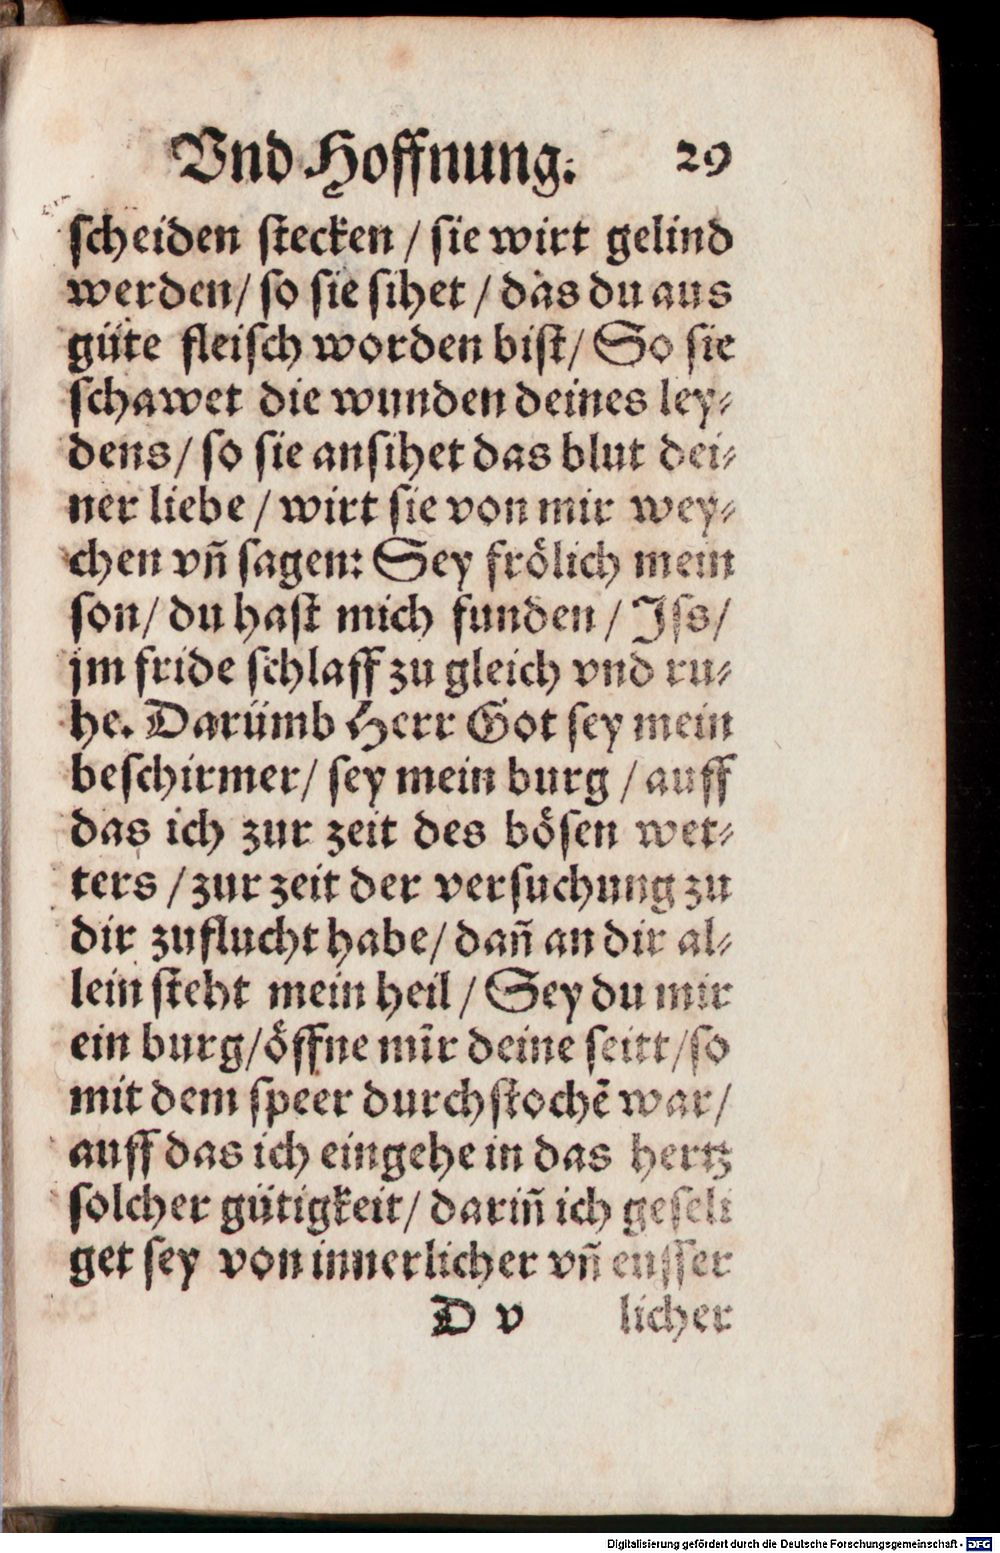 Vnd Hoffnung. 29
scheiden stecken / sie wirt gelind
werden / so sie sihet / das du aus
güte fleisch worden bist / So sie
schawet die wunden deines ley⸗
dens / so sie ansihet das blut dei⸗
ner liebe / wirt sie von mir wey⸗
chen vñ sagen: Sey frölich mein
son / du hast mich funden / Iss /
jm fride schlaff zu gleich vnd ru⸗
he. Darümb Herr Got sey mein
beschirmer / sey mein burg / auff
das ich zur zeit des bösen wet⸗
ters / zur zeit der versuchung zu
dir zuflucht habe / dañ an dir al⸗
lein steht mein heil / Sey du mir
ein burg / öffne mir deine seitt / so
mit dem speer durchstochẽ war /
auff das ich eingehe in das hertz
solcher gütigkeit / dariñ ich geseli
get sey von innerlicher vñ eusser
D v licher
Digitalisierung gefördert durch die Deutsche Forschungsgemeinschaft - DFG